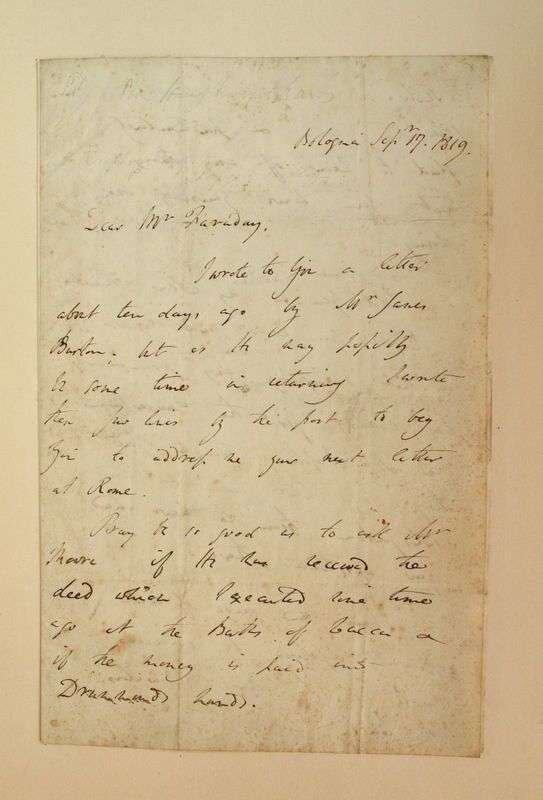 Bologna Sepr 17. 1819.
Dear Mr Faraday,
I wrote to you a letter
about ten days ago by Mr James
Barton; but as he may possibly
be some time in returning I write
these few lines by the post to beg
you to address me your next letter
at Rome.
Pray be so good as to ask Mr
Moore if he has received the
deed which I executed some time
ago at the Baths of Lucca &
if the money is paid into
Drummonds hands.